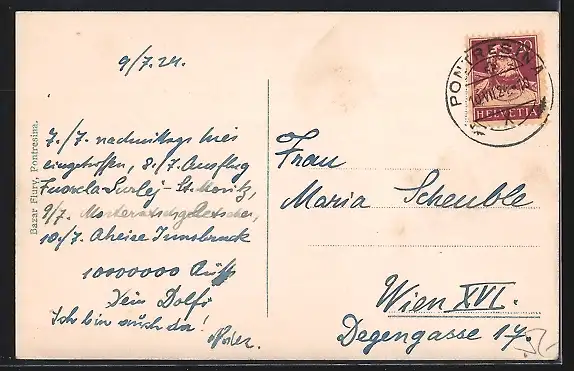 9/7.24.
7./7. nachmittags hier
eingetroffen, 8./7. Ausflug
Fuorcla-Surlej-St. Moritz,
9/7. Morteratschgletscher,
10./7. Abreise Innsbruck
10000000 Küsse
Dein Dolfi
Ich bin auch da!
Frau
Maria Scheuble
Wien XVI.
Degengasse 17.
Bazar Flury, Pontresina.
PONTRESINA
20
HELVETIA